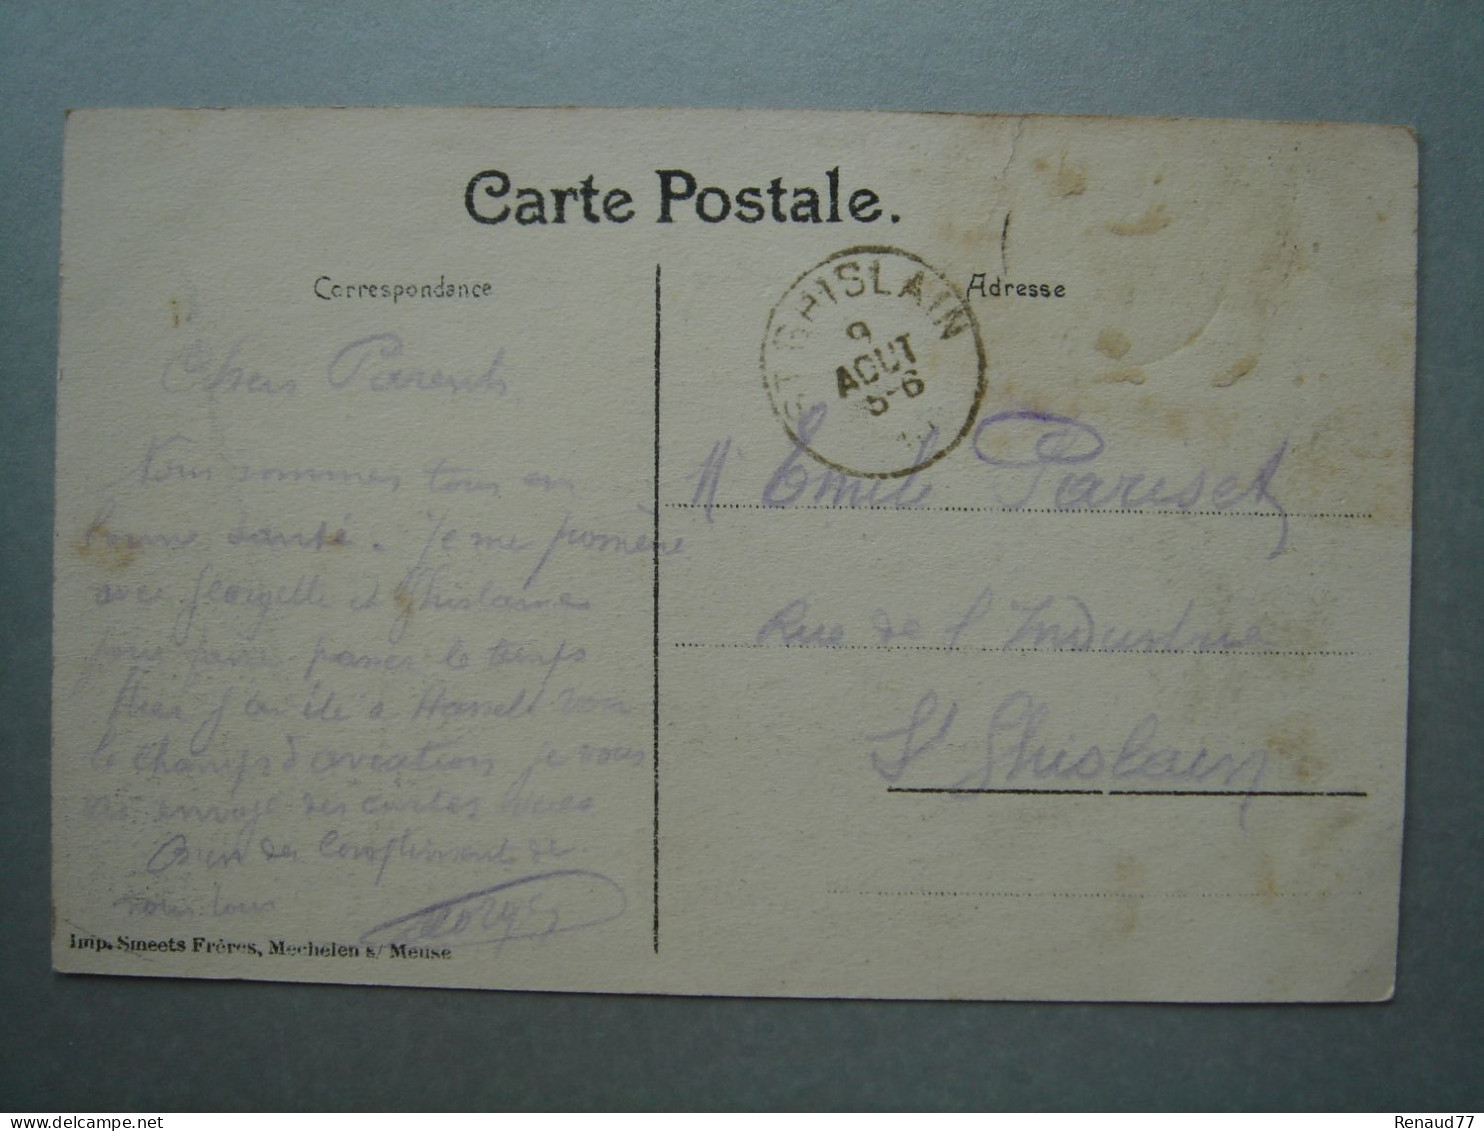 Carte Postale.
Correspondance
Adresse
ST GHISLAIN
9
AOUT
5-6
Chers Parents
Nous sommes tous en
bonne santé. Je me pomène
avec Georgette et Ghislaine
pour faire passer le temps
Hier j'ai été a Hasselt voir
le champs d'aviation je vous
ai envoyé des cartes vues
Bien des Compliments de
nous tous
Georges
Mr Emile Pariset
Rue de l'Industrie
St Ghislain
Imp. Smeets Frères, Mechelen s/ Meuse
Renaud77